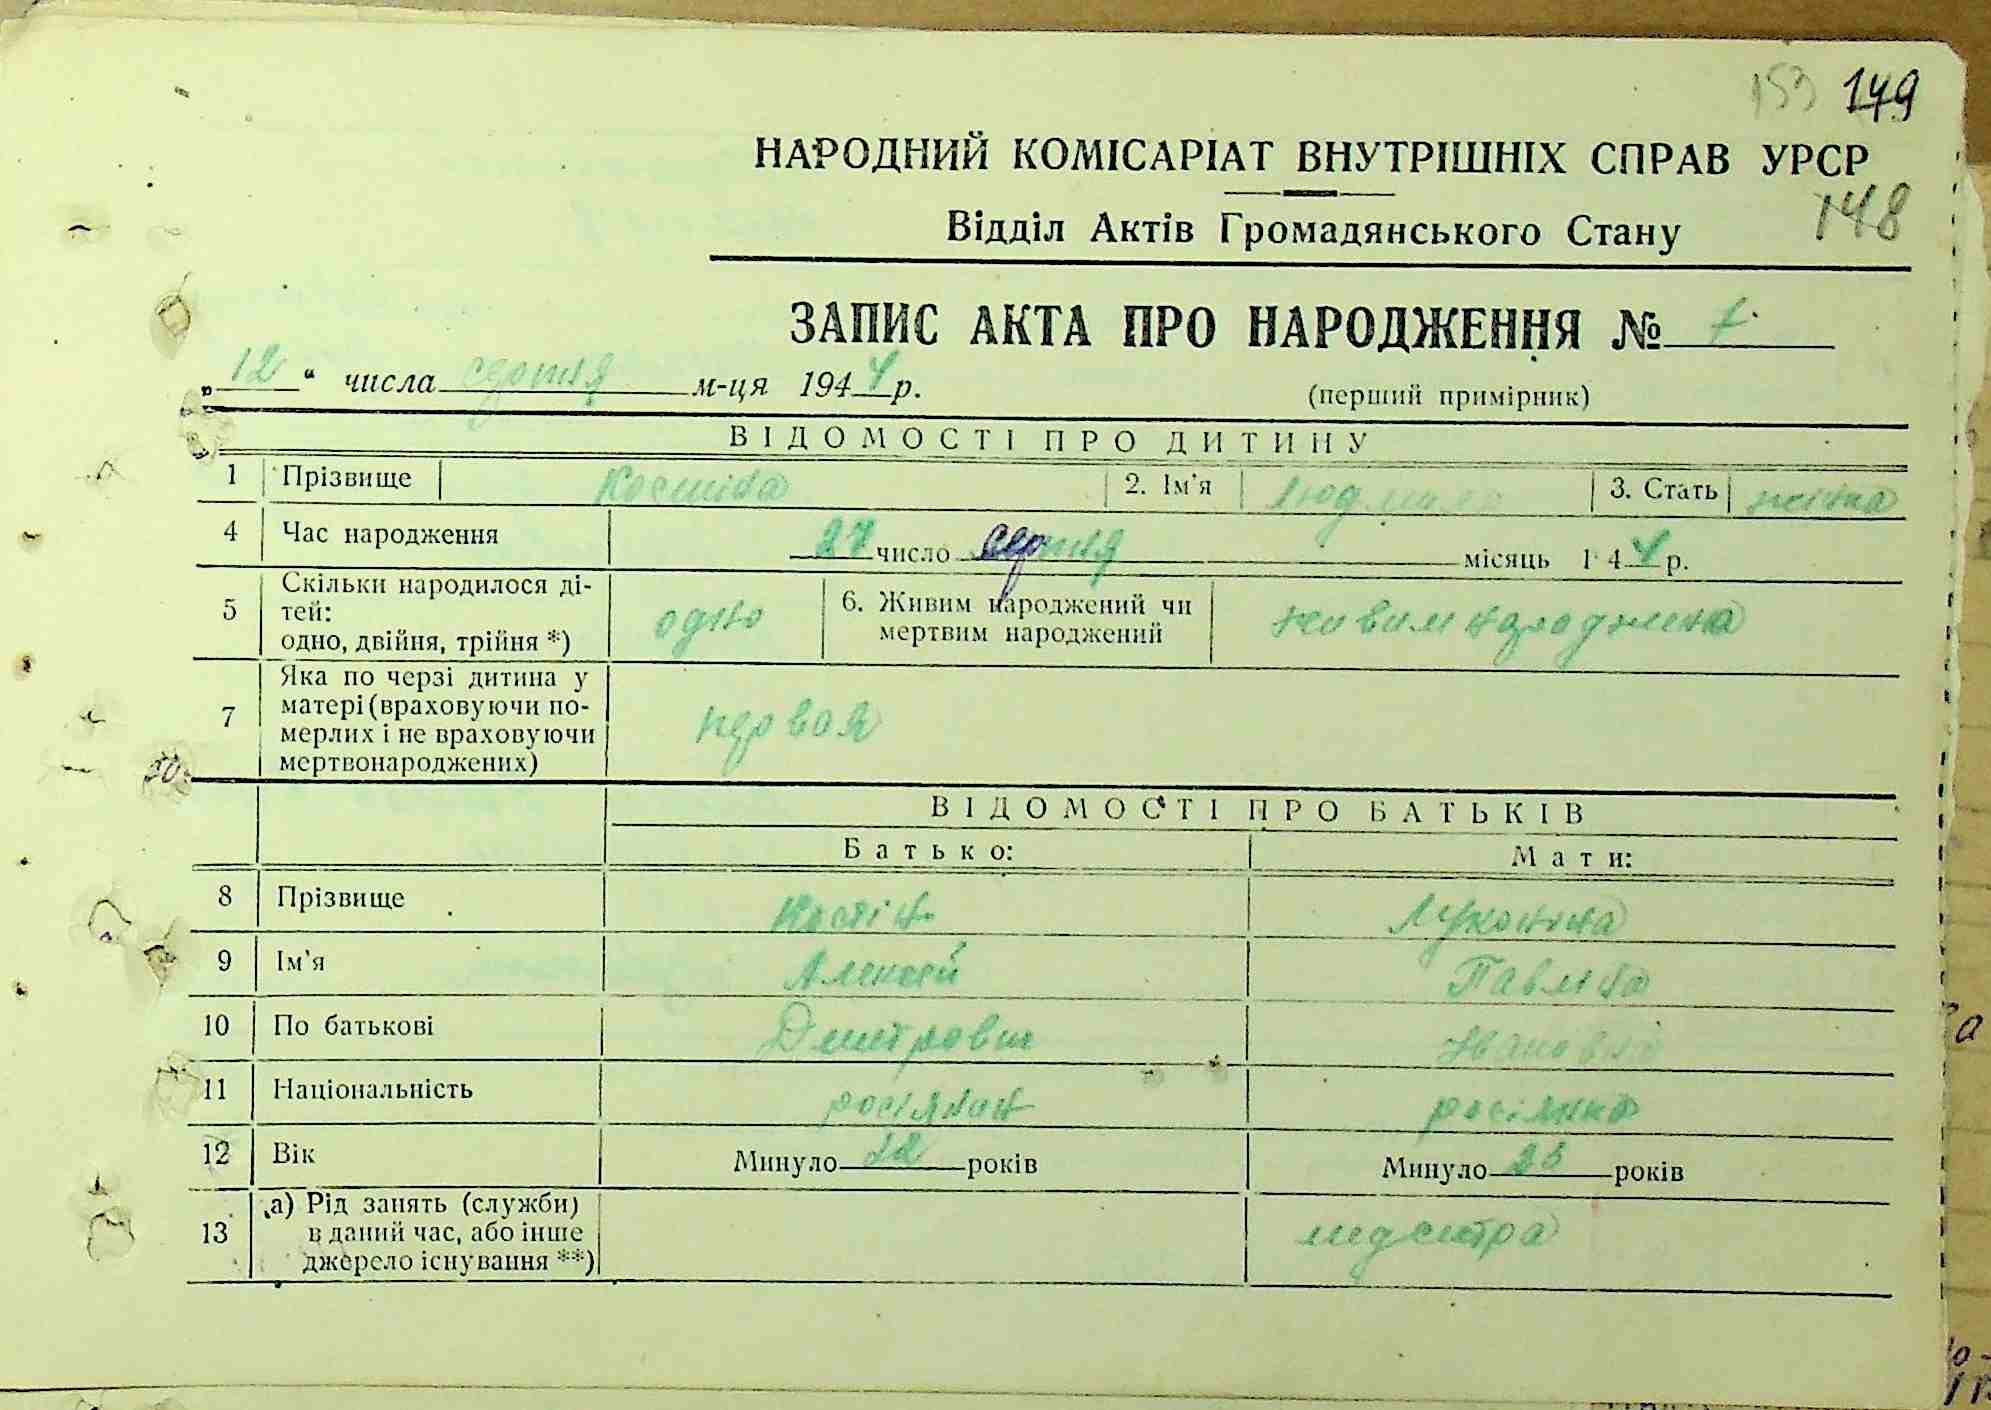 153 149
НАРОДНИЙ КОМІСАРІАТ ВНУТРІШНІХ СПРАВ УРСР
148
Відділ Актів Громадянського Стану
ЗАПИС АКТА ПРО НАРОДЖЕННЯ № 7
„12“ числа серпня м-ця 1944 р.
(перший примірник)
ВІДОМОСТІ ПРО ДИТИНУ
1 Прізвище Костіна 2. Ім'я Людмила 3. Стать жіноча
4 Час народження 27 число серпня місяць 1 44 р.
5 Скільки народилося ді-
тей:
одно, двійня, трійня *) одно 6. Живим народжений чи
мертвим народжений живим народжена
7 Яка по черзі дитина у
матері (враховуючи по-
мерлих і не враховуючи
мертвонароджених) первая
ВІДОМОСТІ ПРО БАТЬКІВ
Батько: Мати:
8 Прізвище Костін Луконина
9 Ім'я Алексей Павлина
10 По батькові Дмитрович Ивановна
11 Національність росіянин росіянка
12 Вік Минуло 22 років Минуло 23 років
13 а) Рід занять (служби)
в даний час, або інше
джерело існування **) медсестра